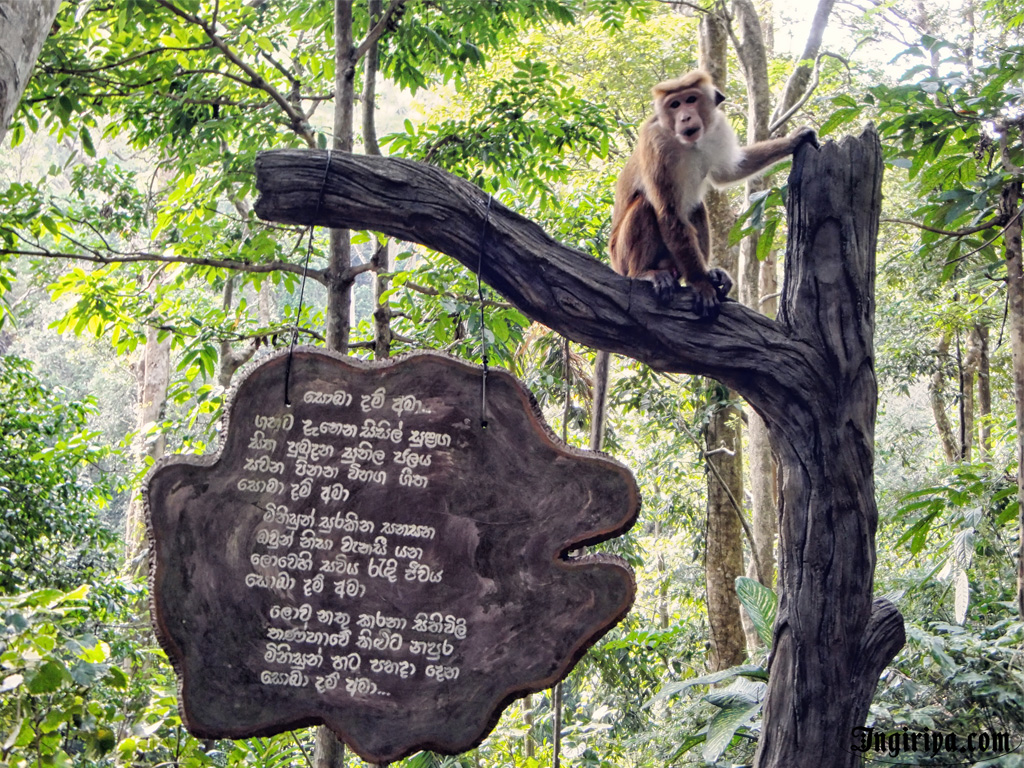 සොබා දම් අමා..
ගතට දැනෙන සිසිල් සුළඟ
සිත පුබුදන සුනිල ජලය
සවන පිනන විහග ගීත
සොබා දම් අමා
මිනිසුන් සුරකින සනසන
ඔවුන් නිසා වැනසී යන
ලොවෙහි සවිය රැඳි ජීවය
සොබා දම් අමා
ලොව නතු කරනා සිතිවිලි
තණ්හාවේ කිළුට නපුර
මිනිසුන් හට පහදා දෙන
සොබා දම් අමා...
Ingiripa.com